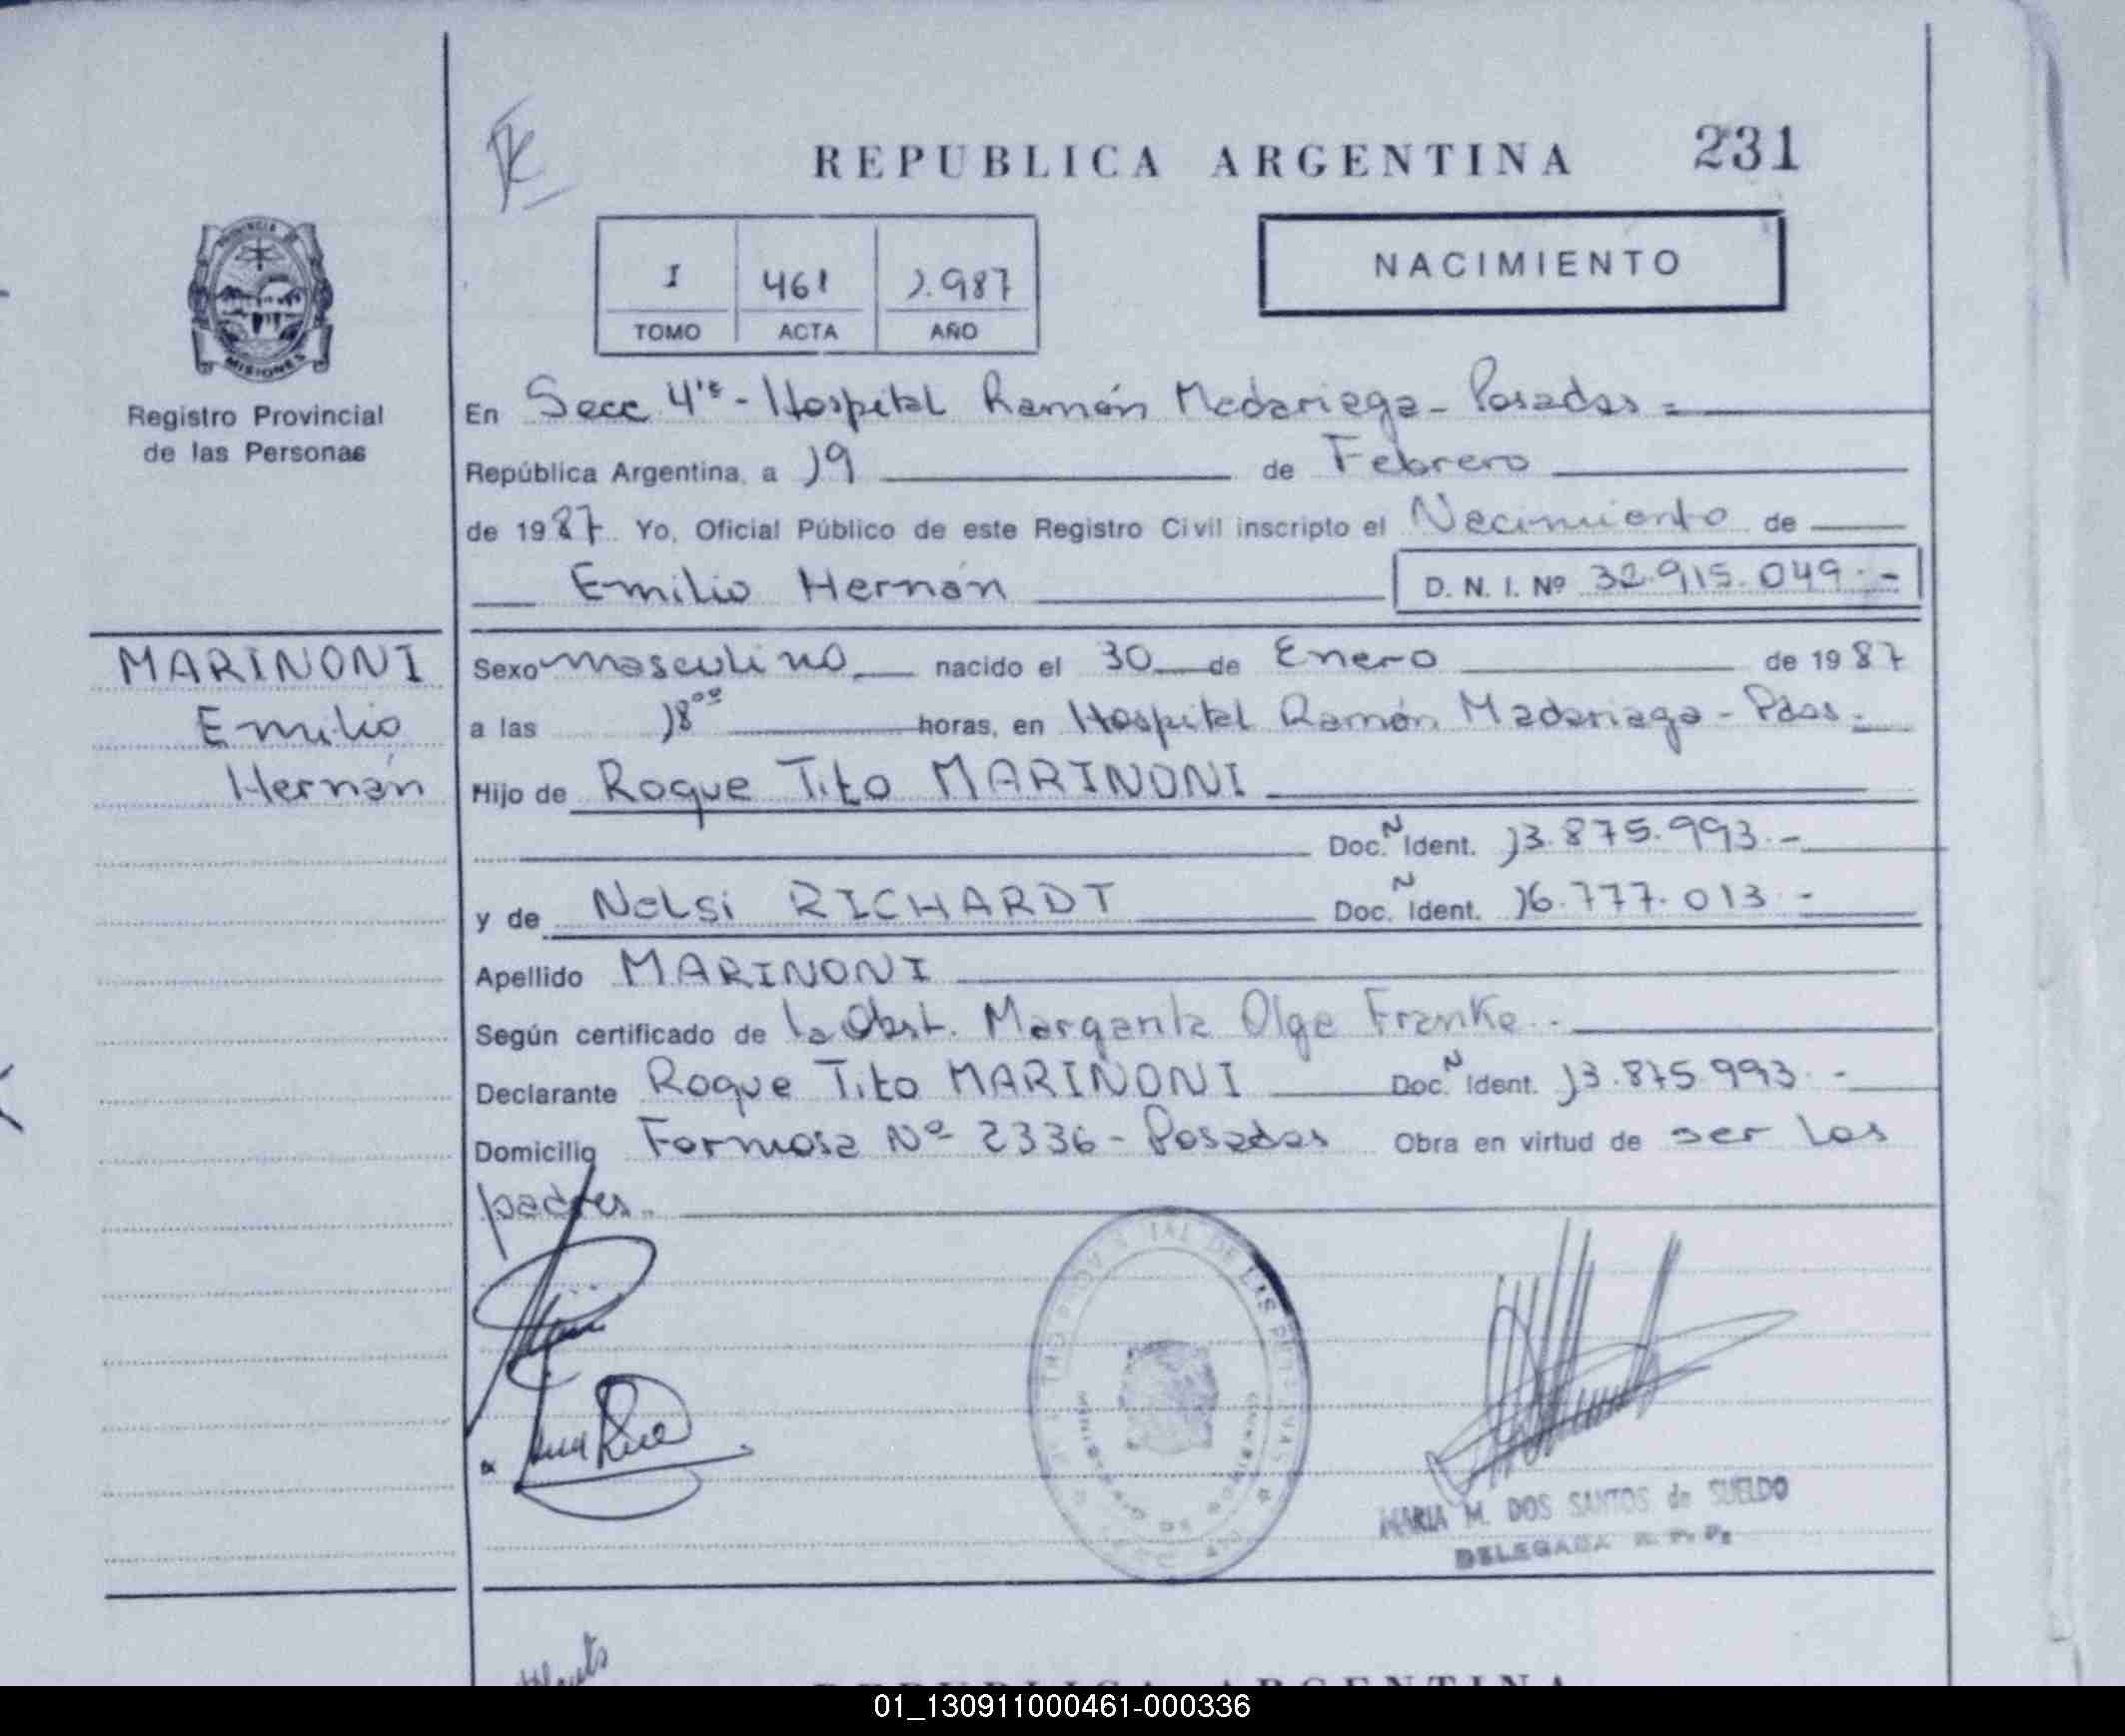 REPUBLICA ARGENTINA 231
I 461 1.987
TOMO ACTA AÑO
NACIMIENTO
PROVINCIA DE
MISIONES
Registro Provincial
de las Personas
En Secc 4ta - Hospital Ramón Madariaga - Posadas =
República Argentina, a 19 de Febrero
de 1987. Yo, Oficial Público de este Registro Civil inscripto el Nacimiento de
Emilio Hernán D. N. I. Nº 32.915.049.-
MARINONI
Emilio
Hernán
Sexo masculino nacido el 30 de Enero de 1987
a las 18°° horas, en Hospital Ramón Madariaga - Pdas.
Hijo de Roque Tito MARINONI
Doc. N Ident. 13.875.993.-
y de Nelsi RICHARDT Doc. N Ident. 16.777.013.-
Apellido MARINONI
Según certificado de la Obst. Margarita Olga Franke.
Declarante Roque Tito MARINONI Doc. N Ident. 13.875.993.-
Domicilio Formosa Nº 2336 - Posadas Obra en virtud de ser los
padres.
MARIA M. DOS SANTOS de SUELDO
DELEGADA R. P. P.
REPUBLICA ARGENTINA
01_130911000461-000336